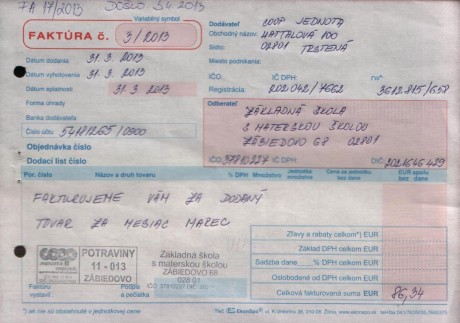 FA 17/2013 DOŠLO 5.4.2013
Variabilný symbol
FAKTÚRA č. 3/2013
Dodávateľ COOP JEDNOTA
Obchodný názov: HATTALOVA 100
Sídlo 02801 TRSTENÁ
Dátum dodania 31. 3. 2013
Dátum vyhotovenia 31. 3. 2013
Miesto podnikania:
Dátum splatnosti 31. 3. 2013
IČO: IČ DPH:
Registrácia: 202042/7662 3612815/658
Forma úhrady
Banka dodávateľa
Číslo účtu 54181265/0900
Odberateľ
ZÁKLADNÁ ŠKOLA
S MATERSKOU ŠKOLOU
ZÁBIEDOVO 68 02801
Objednávka číslo
Dodací list číslo
IČO: 37810227 IČ DPH: DIČ: 2021646439
Por. číslo Názov a druh tovaru % DPH Množstvo Jednotka množstva Cena za jednotku bez dane EUR spolu bez dane
FAKTURUJEME VÁM ZA DODANÝ
TOVAR ZA MESIAC MAREC
Zľavy a rabaty celkom*) EUR
Základ DPH celkom EUR
Sadzba dane % DPH celkom EUR
Oslobodené od DPH celkom EUR
Celková fakturovaná suma EUR 86,34
COOP
POTRAVINY
11 - 013
ZÁBIEDOVO
Základná škola
s materskou školou
ZÁBIEDOVO 68
028 01
Faktúru vystavil:
Podpis a pečiatka
*) ak nie sú obsiahnuté v jednotkovej cene